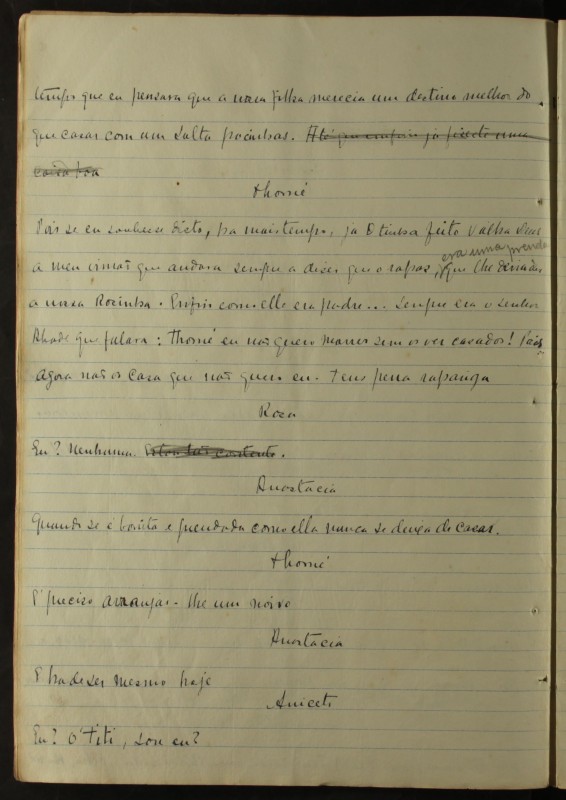 tempo que eu pensava que a nossa filha merecia um destino melhor do
que casar com um salta pocinhas. Até que emfim já
coisa boa
Thomé
Pois se eu soubesse d'isto, ha mais tempo, já o tinha feito. Valha Deus
era uma prenda
a meu irmão que andava sempre a dizer que o rapaz, que lhe
a nossa Rosinha. Emfim como elle era padre... Sempre era o senhor
Abade que falava: Thomé eu não quero morrer sem os ver casados! Pois
agora não os casa que não quero eu. Tens pena rapariga
Roza
Eu? Nenhuma. Estou tão contente.
Anastacia
Quando se é bonita e prendada como ella nunca se deixa de casar.
Thomé
É preciso arranjar-lhe um noivo
Anastacia
E ha de ser mesmo hoje
Aniceto
Eu? Ó Titi, sou eu?